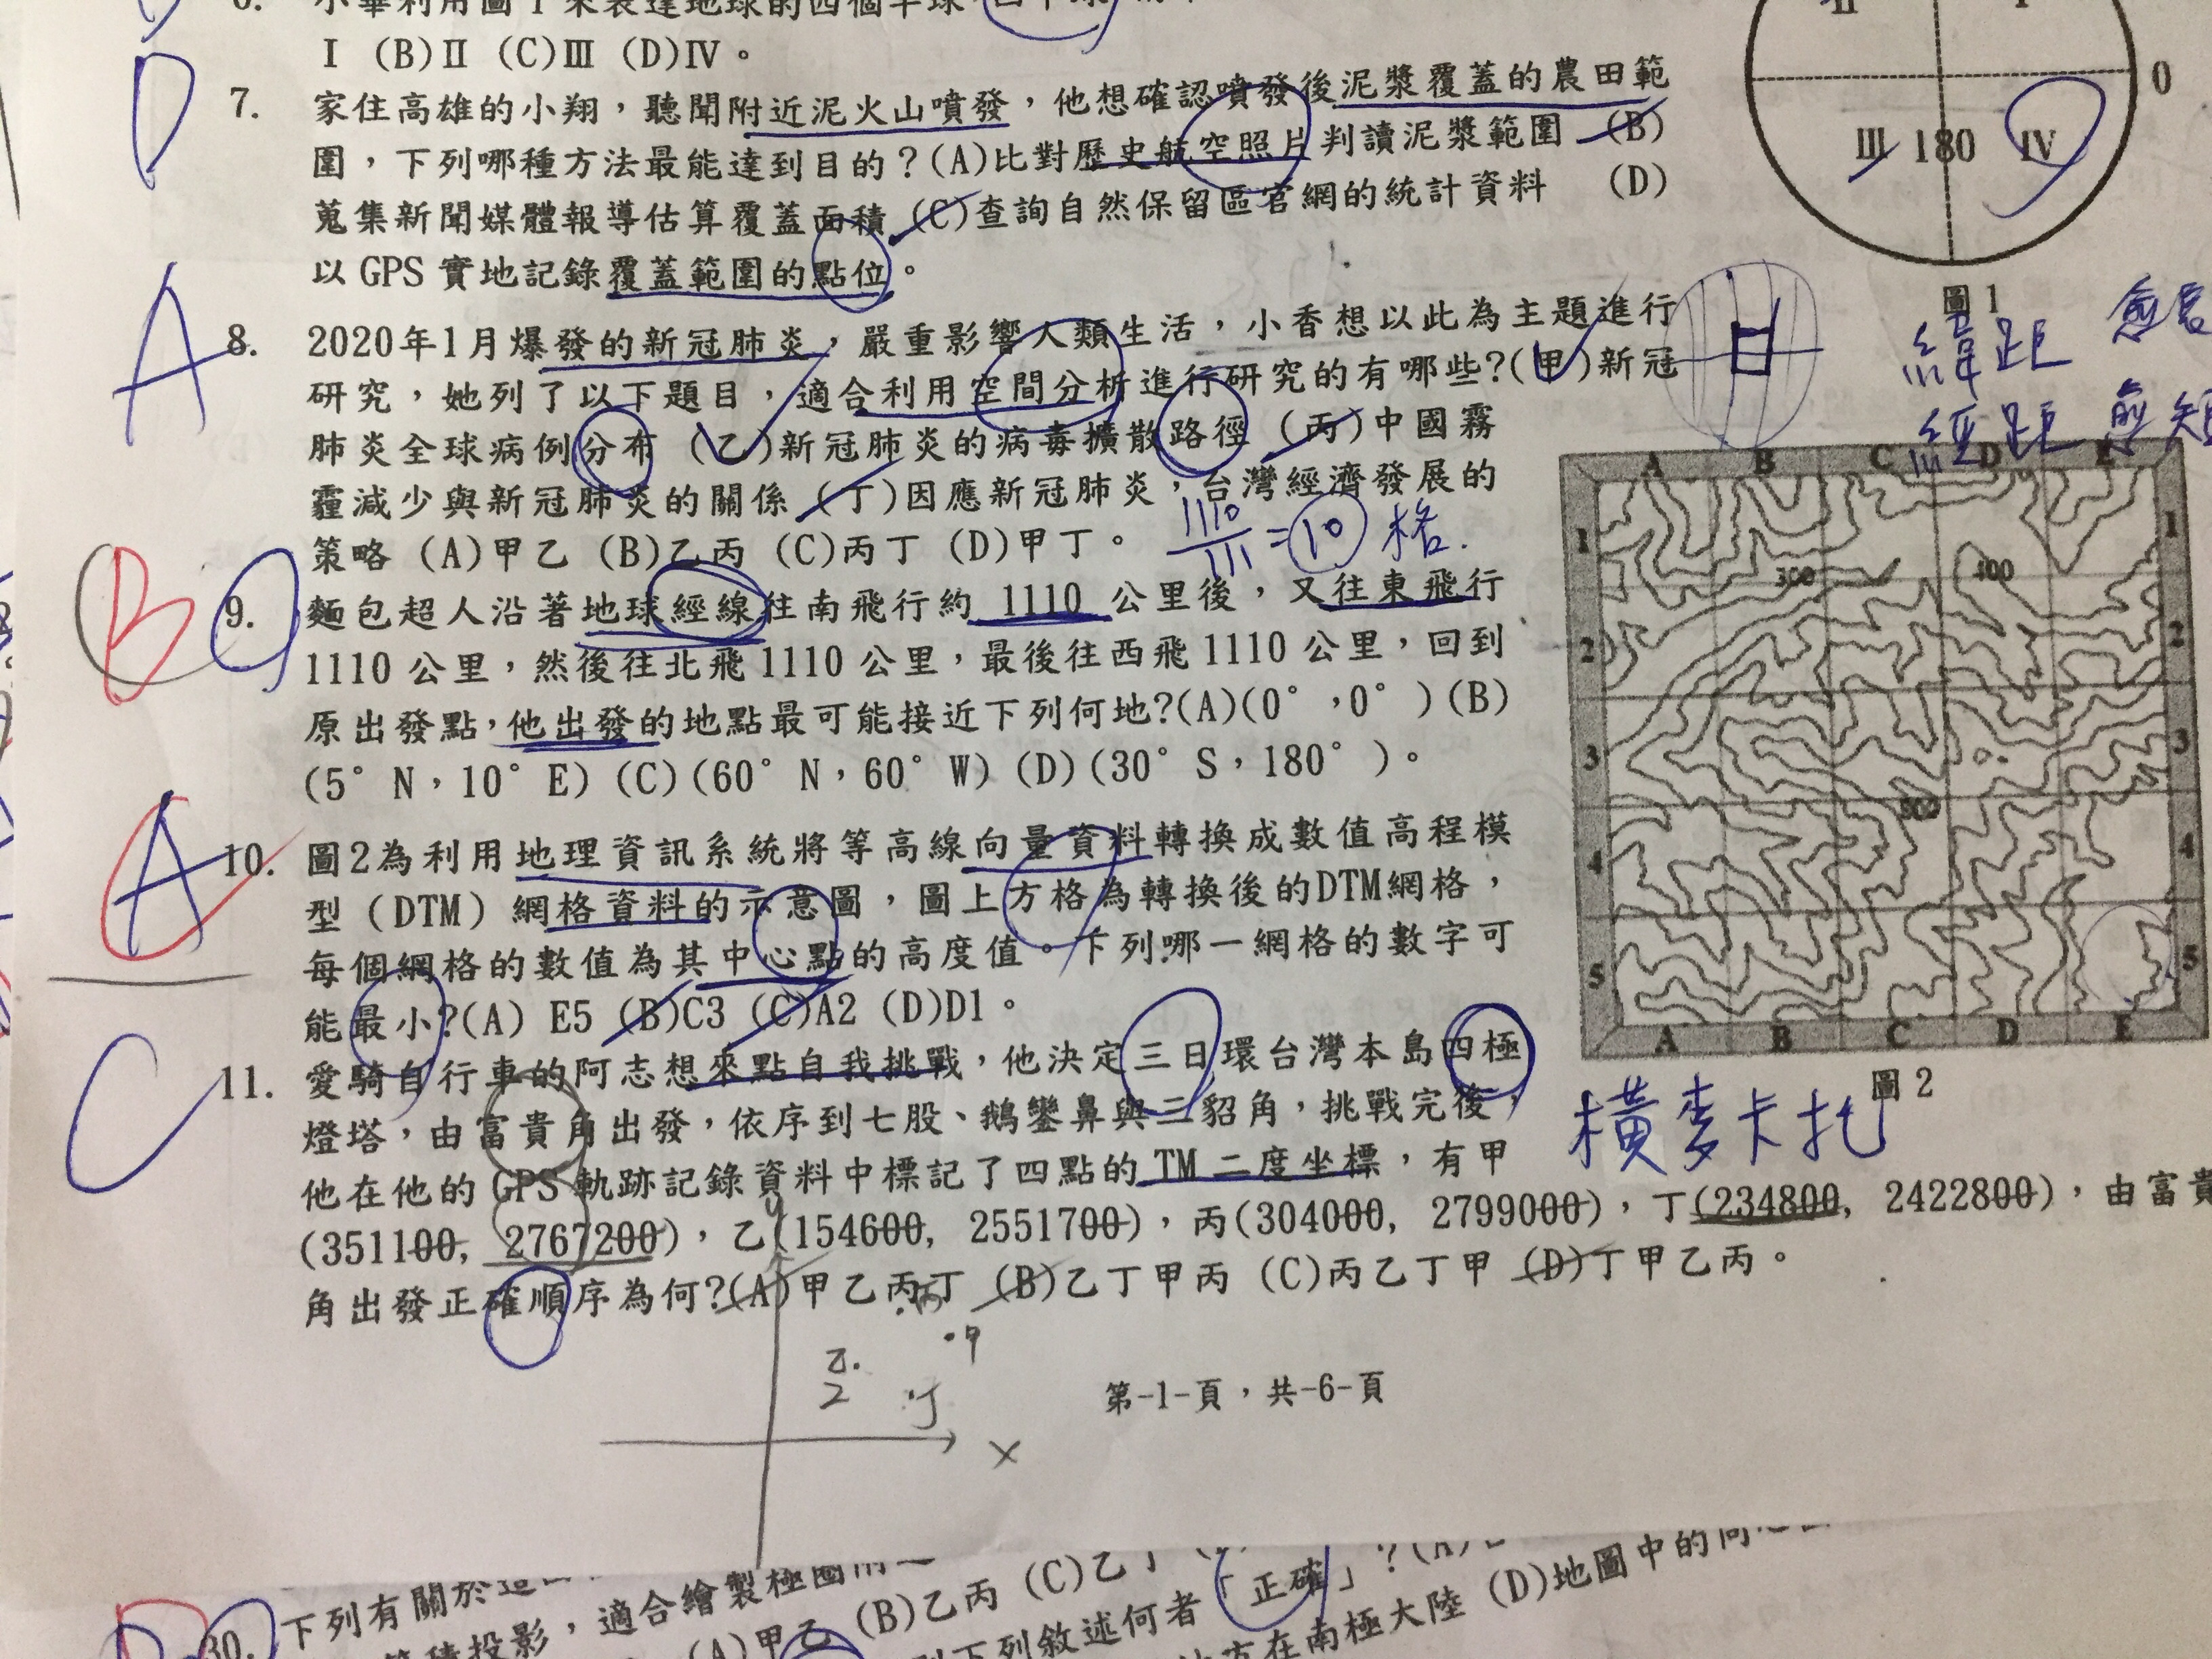 6. 小華利用圖1來表達地球的四個半球
I (B)Ⅱ (C)Ⅲ (D)Ⅳ。
D
7. 家住高雄的小翔，聽聞附近泥火山噴發，他想確認噴發後泥漿覆蓋的農田範
圍，下列哪種方法最能達到目的？(A)比對歷史航空照片判讀泥漿範圍 (B)
蒐集新聞媒體報導估算覆蓋面積 (C)查詢自然保留區官網的統計資料 (D)
以 GPS 實地記錄覆蓋範圍的點位。
Ⅱ I
0
Ⅲ 180 Ⅳ
圖 1
A
8. 2020年1月爆發的新冠肺炎，嚴重影響人類生活，小香想以此為主題進行
研究，她列了以下題目，適合利用空間分析進行研究的有哪些?(甲)新冠
肺炎全球病例分布 (乙)新冠肺炎的病毒擴散路徑 (丙)中國霧
霾減少與新冠肺炎的關係 (丁)因應新冠肺炎，台灣經濟發展的
策略 (A)甲乙 (B)乙丙 (C)丙丁 (D)甲丁。
1110/111=10 格.
緯距
經距 愈短
B
9. 麵包超人沿著地球經線往南飛行約 1110 公里後，又往東飛行
1110 公里，然後往北飛 1110 公里，最後往西飛 1110 公里，回到
原出發點，他出發的地點最可能接近下列何地?(A)(0°,0°)(B)
(5° N，10° E) (C)(60° N，60° W) (D)(30° S，180°)。
A
10. 圖2為利用地理資訊系統將等高線向量資料轉換成數值高程模
型（DTM）網格資料的示意圖，圖上方格為轉換後的DTM網格，
每個網格的數值為其中心點的高度值。下列哪一網格的數字可
能最小?(A) E5 (B)C3 (C)A2 (D)D1。
A B C D E
1 1
300 400
2 2
3 3
4 4
5 5
A B C D E
圖 2
C
11. 愛騎自行車的阿志想來點自我挑戰，他決定三日環台灣本島四極
燈塔，由富貴角出發，依序到七股、鵝鑾鼻與三貂角，挑戰完後，
他在他的 GPS 軌跡記錄資料中標記了四點的 TM 二度坐標，有甲
(351100, 2767200)，乙(154600, 2551700)，丙(304000, 2799000)，丁(234800, 2422800)，由富貴
角出發正確順序為何?(A)甲乙丙丁 (B)乙丁甲丙 (C)丙乙丁甲 (D)丁甲乙丙。
橫麥卡托
y
丙
甲
乙
丁
x
第-1-頁，共-6-頁
30. 下列有關於
投影，適合繪製極圈
(A)甲乙 (B)乙丙 (C)乙丁
下列敘述何者「正確」？(A)
地方在南極大陸 (D)地圖中的